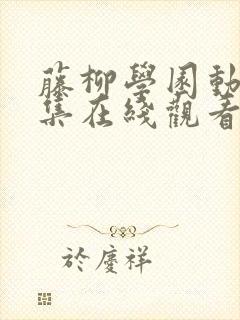 藤柳學園動
集在綫觀看
於慶祥